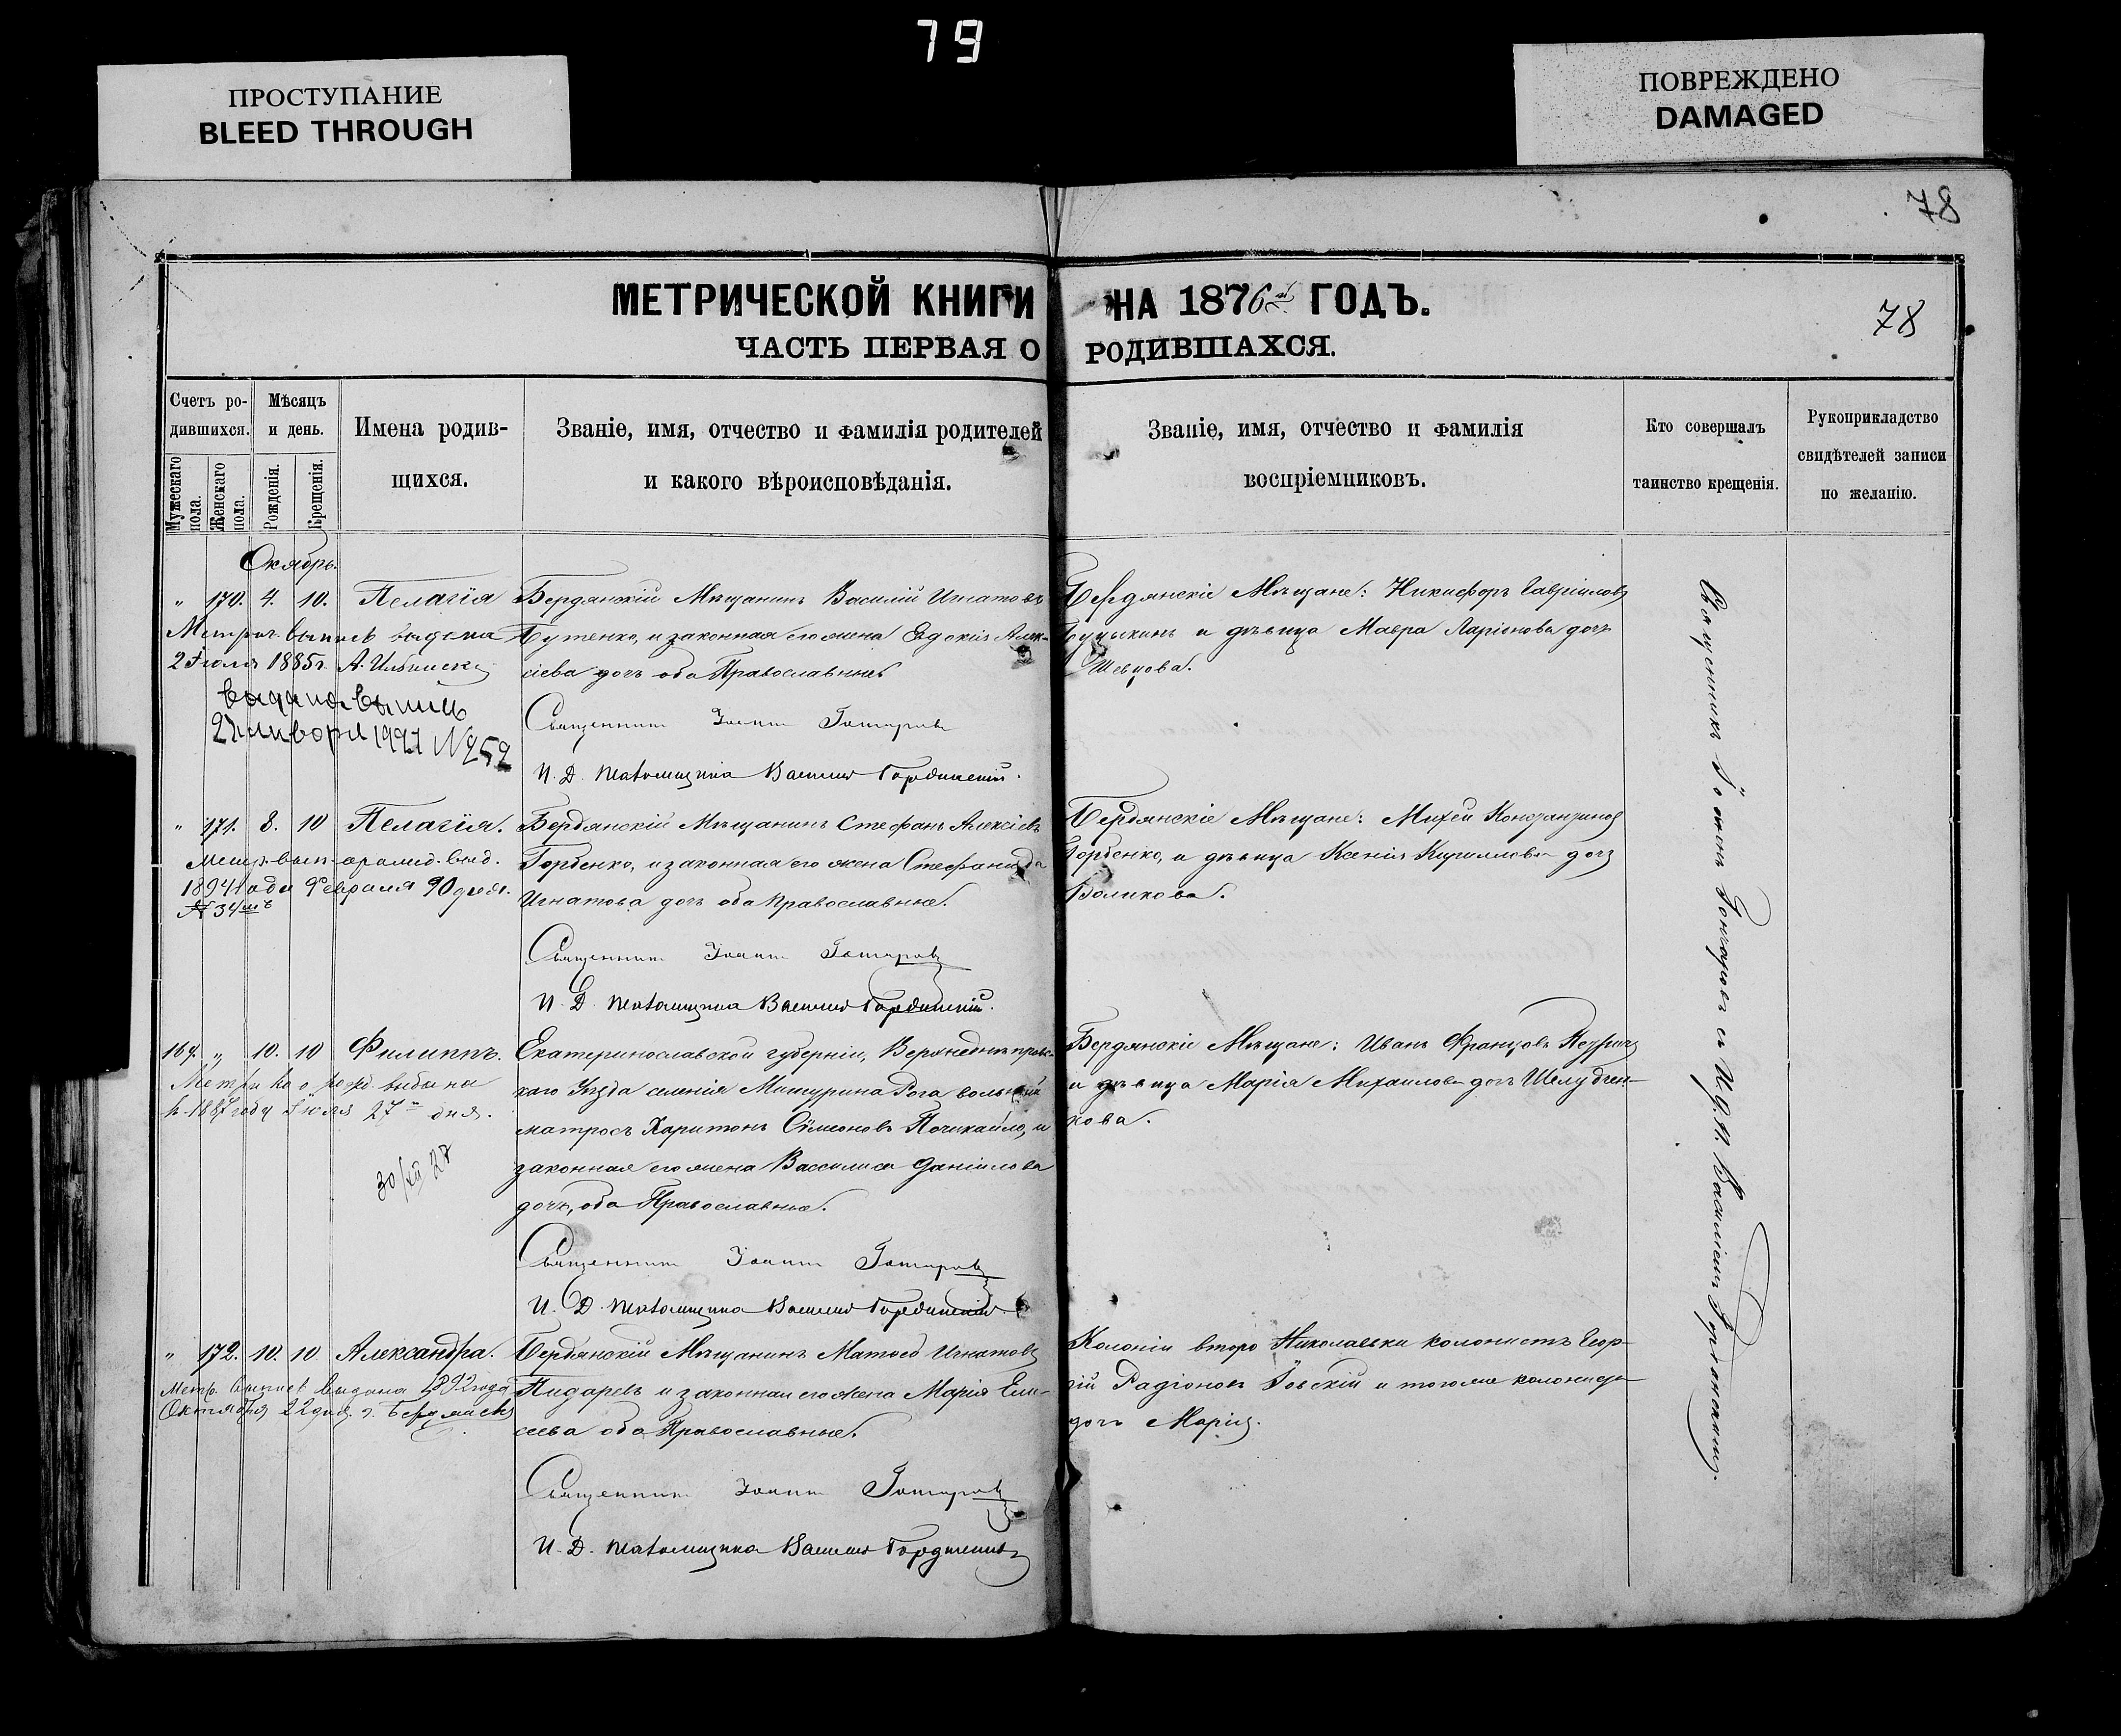 79
ПРОСТУПАНИЕ
BLEED THROUGH
ПОВРЕЖДЕНО
DAMAGED
78
МЕТРИЧЕСКОЙ КНИГИ НА 1876й ГОДЪ.
78
ЧАСТЬ ПЕРВАЯ О РОДИВШАХСЯ.
Счетъ ро-
дившихся.
Мужескаго пола.
Женскаго пола.
Мѣсяцъ
и день.
Рожденія.
Крещенія.
Имена родив-
щихся.
Званіе, имя, отчество и фамилія родителей
и какого вѣроисповѣданія.
Званіе, имя, отчество и фамилія
воспріемниковъ.
Кто совершалъ
таинство крещенія.
Рукоприкладство
свидѣтелей записи
по желанію.
Октябрь.
" 170. 4. 10. Пелагія
Метрич. выпись выдана
2 Іюля 1885 г.
выдана выпись
22 января № 252
Бердянскій Мѣщанинъ Василій Игнатовъ
Бутенко, и законная его жена Евдокія Алек-
сіева дочь оба Православные
Священникъ Іоаннъ Гончаровъ
И. Д. псаломщика Василій Гординскій.
Бердянскіе Мѣщане: Никифоръ Гавріиловъ
и дѣвица Мавра Ларіонова дочь
Шевцова.
" 171. 8. 10 Пелагія.
1894 года Февраля 20 дня.
№ 34мъ
Бердянскій Мѣщанинъ Стефанъ Алексіевъ
Горбенко, и законная его жена Стефанида
Игнатова дочь оба Православные.
Священникъ Іоаннъ Гончаровъ
И. Д. псаломщика Василій Гординскій.
Бердянскіе Мѣщане: Михей Константиновъ
Горбенко, и дѣвица Ксенія Кириллова дочь
Воликова.
169. " 10. 10 Филиппъ.
Метрика о рожд. выдана
в 1887 году Іюля 27го дня.
30/XII 27
Екатеринославской губерніи, Верхнеднѣпровс-
каго Уѣзда селенія Мишурина Рога вольный
матросъ Харитонъ Сѵмеоновъ Почикайло, и
законная его жена Вассилиса Даніилова
дочь, оба Православные.
Священникъ Іоаннъ Гончаровъ
И. Д. псаломщика Василій Гординскій.
Бердянскіе Мѣщане: Иванъ Францовъ
и дѣвица Марія Михаилова дочь Шелудчен-
кова.
" 172. 10. 10 Александра.
Метр. выпись выдана 1892 года
Октября 22 дня. г. Бердянскъ
Бердянскій Мѣщанинъ Матѳей Игнатовъ
Пидаревъ и законная его жена Марія Ели-
сеева оба Православные.
Священникъ Іоаннъ Гончаровъ
И. Д. псаломщика Василій Гординскій
Колоніи второ Николаевки колонистъ Геор-
гій Радіоновъ и тогоже колониста
дочь Марія.
Священникъ Іоаннъ Гончаровъ съ И. Д. П. Василіемъ Гординскимъ.